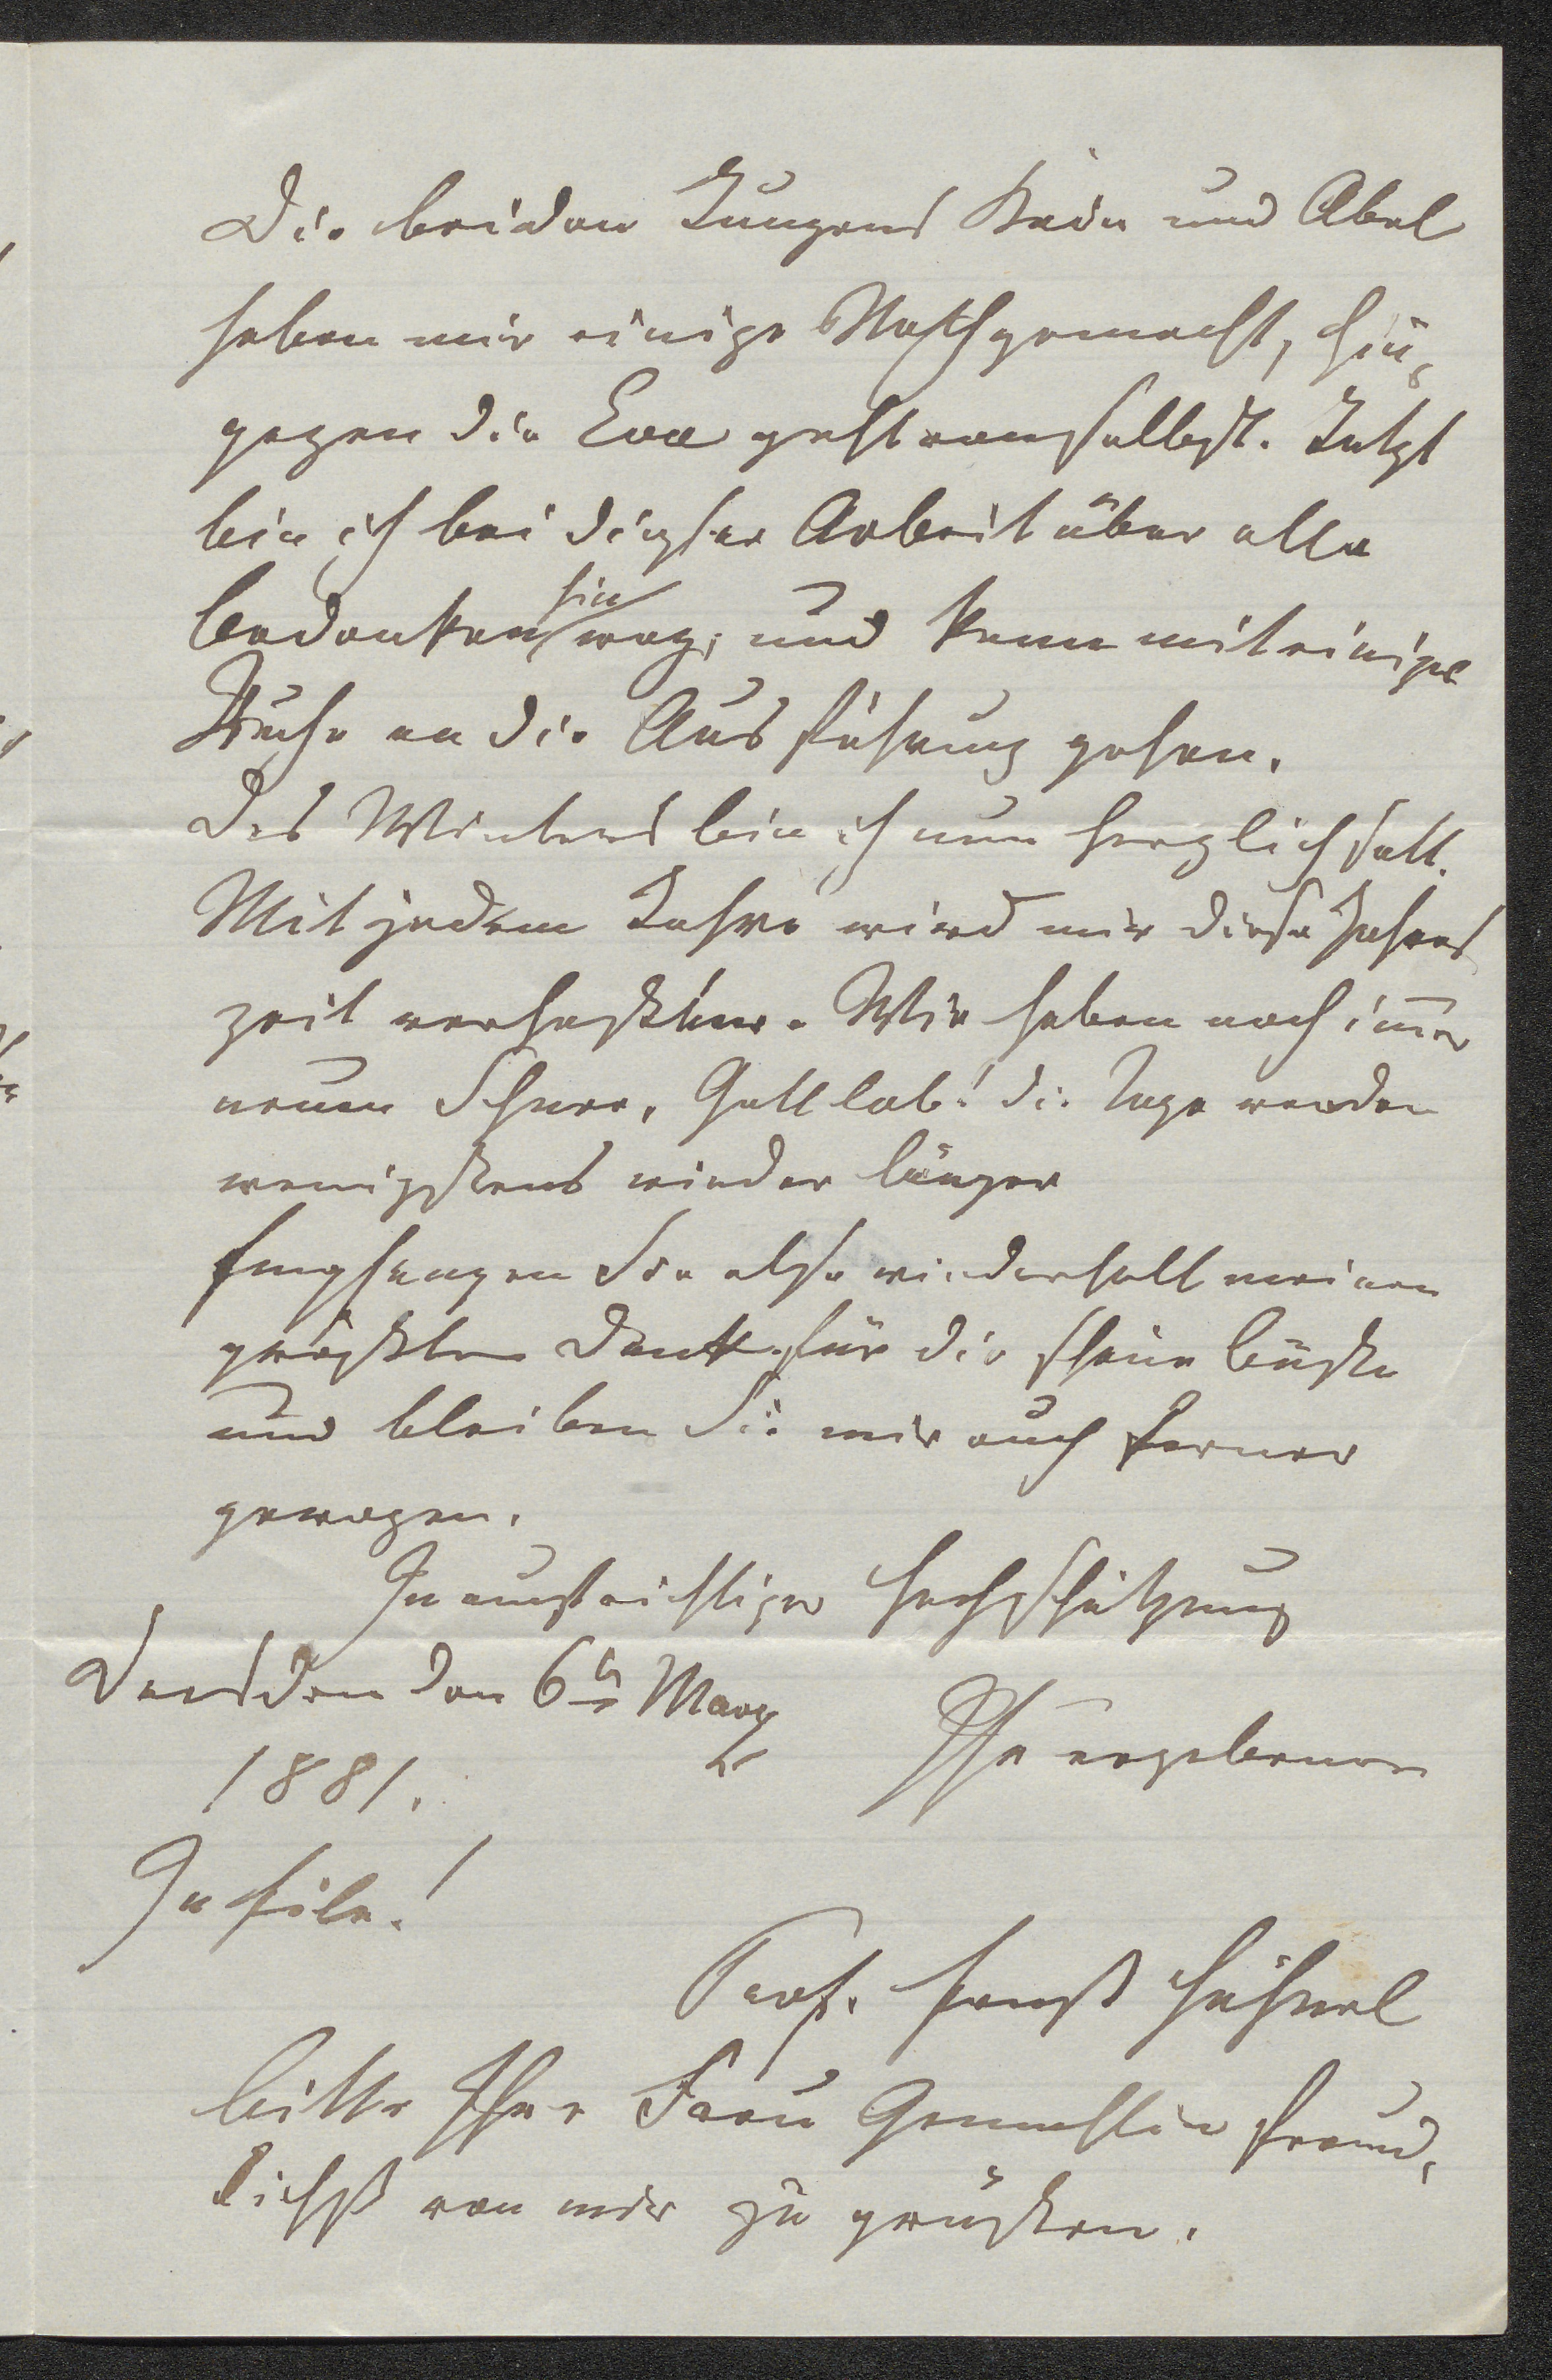 Die beiden Jungens Kain und Abel
haben mir einige Noth gemacht, hin,
gegen die Eva geht von selbst. Jetzt
bin ich bei dieser Arbeit über alle
bedenken hin weg, und kann mit einiger
Ruhe an die Ausführung gehen.
Des Winters bin ich nun herzlich satt.
Mit jedem Jahre wird mir diese Jahres
zeit verhaßter. Wir haben noch im̄er
neuen Schnee, Gott lob! die Tage werden
wenigstens wieder länger
Empfangen Sie also wiederholt meinen
größten Dank für die schöne büste
und bleiben Sie mir auch ferner
gewogen.
In aufrichtiger Hochschätzung
Dresden den 6ten März
Ihr ergebener
1881.
In Eile!
Prof. Ernst Hähnel
bitte Ihre Frau Gemahlin freund,
lichst von mir zu grüßen.